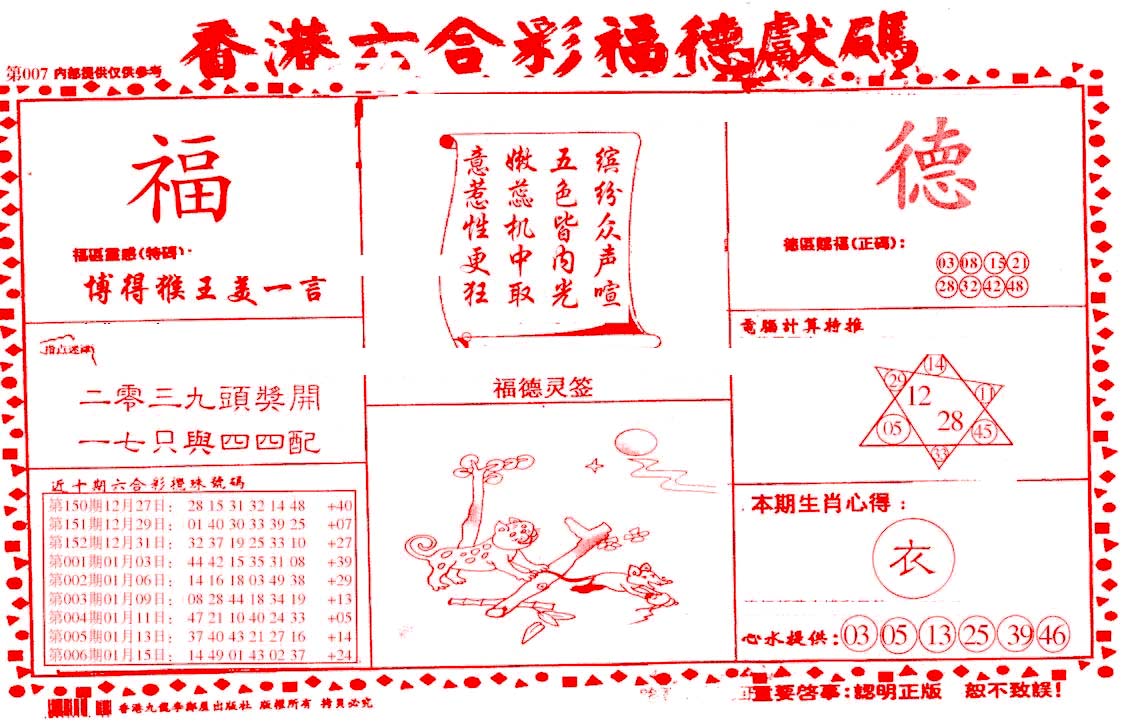 香港六合彩福德獻碼
第007 内部提供仅供参考
福
福區靈感(特碼):
博得猴王美一言
缤纷众声喧
五色皆内光
嫩蕊机中取
意惹性更狂
德
德區賜福(正碼):
03 08 15 21
28 32 42 48
指点迷津
二零三九頭獎開
一七只與四四配
福德灵签
電腦計算特推
14
29 12 11
05 28 45
33
近十期六合彩攪珠號碼
第150期12月27日: 28 15 31 32 14 48 +40
第151期12月29日: 01 40 30 33 39 25 +07
第152期12月31日: 32 37 19 25 33 10 +27
第001期01月03日: 44 42 15 35 31 08 +39
第002期01月06日: 14 16 18 03 49 38 +29
第003期01月09日: 08 28 44 18 34 19 +13
第004期01月11日: 47 21 10 40 24 33 +05
第005期01月13日: 37 40 43 21 27 16 +14
第006期01月15日: 14 49 01 43 02 37 +24
本期生肖心得:
衣
心水提供: 03 05 13 25 39 46
香港九龍李鄭屋出版社 版權所有 拷貝必究
重要啓事:認明正版 恕不致誤!